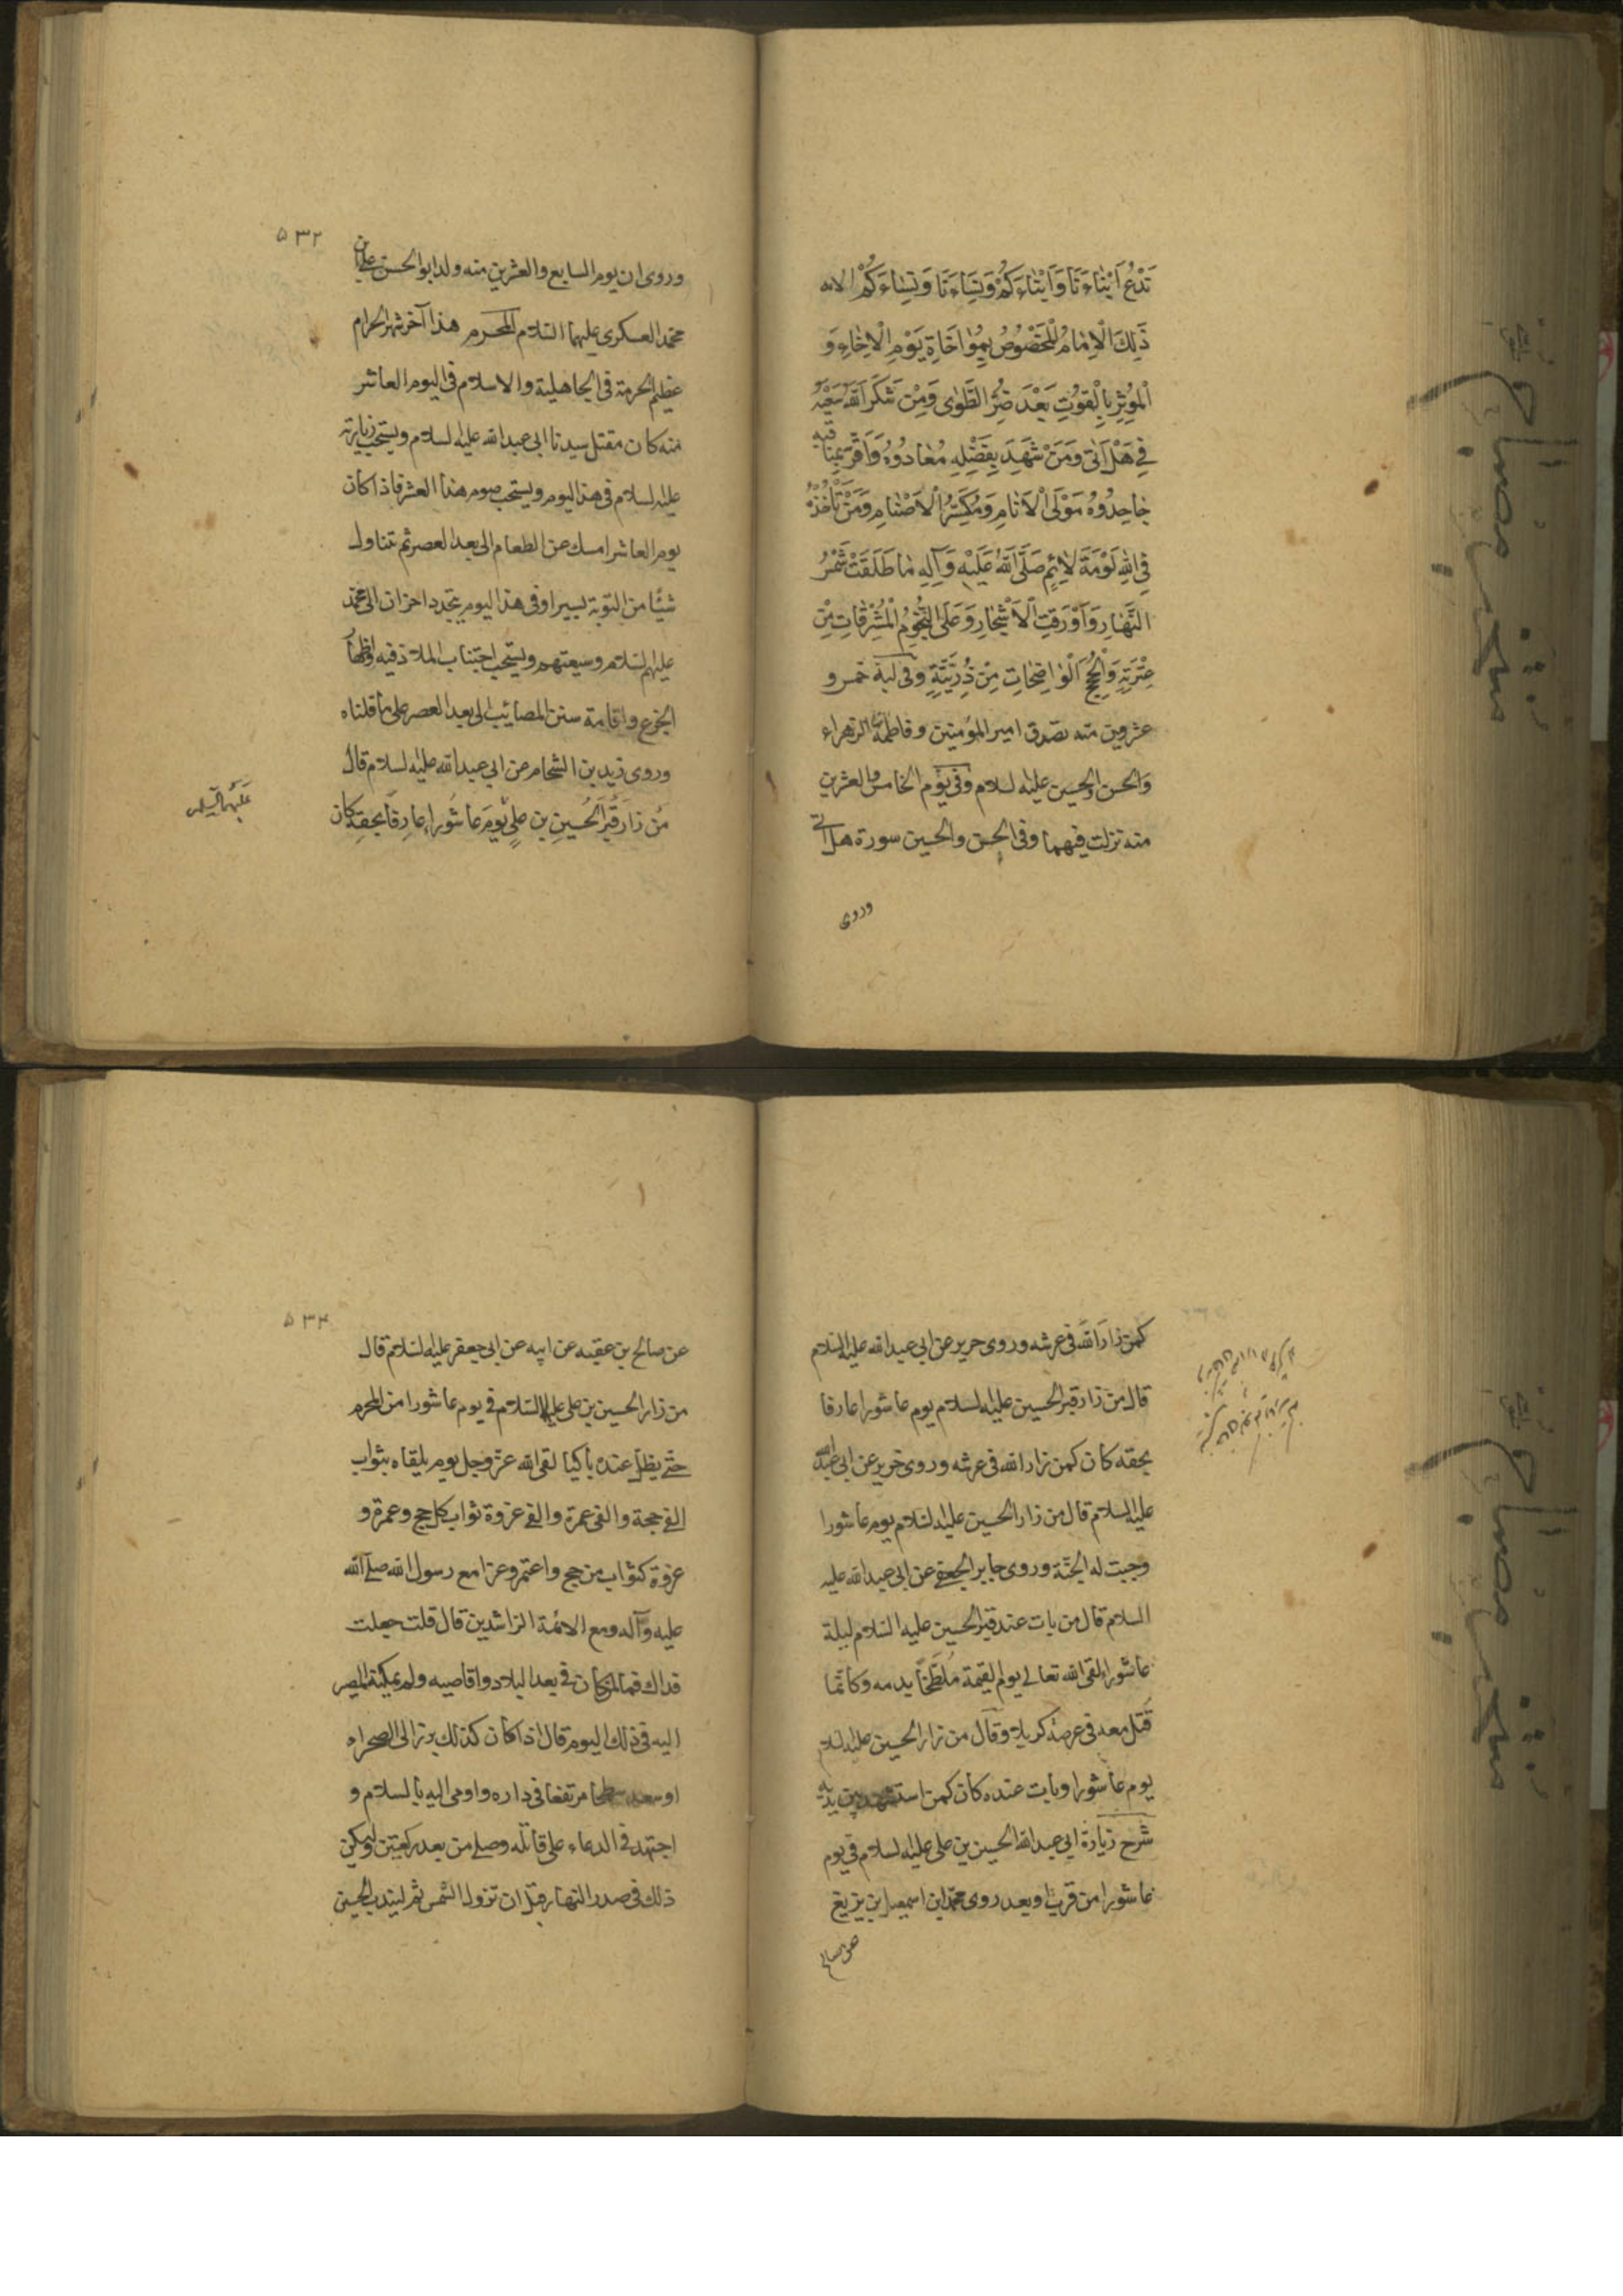 تَدْعُ اَبْنَاءَنَا وَاَبْنَاءَكُمْ وَنِسَاءَنَا وَنِسَاءَكُمْ الايه
ذَلِكَ الْاِمَامُ الْمَخْصُوصُ بِمُوَاخَاةِ يَوْمِ الْاِخَاءِ وَ
الْمُؤثِرِ بِالْقُوتِ بَعْدَ ضُرِّ الطَّوٰى وَمَنْ شَكَرَ اللهُ سَعْيَهُ
فِي هَلْ اَتٰى وَمَنْ شَهِدَ بِفَضْلِهِ مُعَادُوهُ وَاَقَرَّ بِمَنَاقِبِهِ
جَاحِدُوهُ مَوْلَى الْاَنَامِ وَمُكَسِّرُ الْاَصْنَامِ وَمَنْ لَمْ تَأْخُذْهُ
فِي اللهِ لَوْمَةُ لَائِمٍ صَلَّى اللهُ عَلَيْهِ وَآلِهِ مَا طَلَعَتْ شَمْسُ
النَّهَارِ وَاَوْرَقَتِ الْاَشْجَارِ وَعَلَى النُّجُومِ الْمُشْرِقَاتِ مِنْ
عِتْرَتِهِ وَالْحُجَجِ الْوَاضِحَاتِ مِنْ ذُرِّيَّتِهِ وفى ليلة خمس و
عشرين منه تصدق امير المؤمنين وفاطمة الزهراء
والحسن والحسين عليه لسلام وفى يوم الخامس والعشرين
منه نزلت فيهما وفى الحسن والحسين سورة هل اتى
وروى
۵۳۲
وروى ان يوم السابع والعشرين منه ولد ابو الحسن على بن
محمد العسكرى عليهما السّلام المحرم هذا آخر شهر الحرام
عظيم الحرمة فى الجاهلية والاسلام فى اليوم العاشر
منه كان مقتل سيدنا ابى عبد الله عليه لسلام ويستحب زيارته
عليه لسلام فى هذا اليوم ويستحب صوم هذا العشر فاذا كان
يوم العاشر امسك عن الطعام الى بعد العصر ثم تناول
شيئا من التوبة يسيرا وفى هذا اليوم يتجدد احزان ال محمّد
عليهم لسّلام وشيعتهم ويستحب اجتناب الملاذ فيه واظهار
الجزع واقامة سنن المصائب الى بعد العصر على ما قلناه
وروى زيد بن الشحام عن ابى عبد الله عليه لسلام قال
مَن زَارَ قَبْرَ الحُسَينِ بن عليٍّ يَومَ عَاشُوراءِ عَارِفًا بِحَقِهِ كان
عَلَيهِمَا السَّلم
كمن زار الله فى عرشه وروى حريز عن ابى عبد الله عليه السّلام
قال من زار قبر الحسين عليه لسلام يوم عاشورا عارفا
بحقه كان كمن زار الله فى عرشه وروى حريز عن ابى عبد الله
عليه السلام قال من زار الحسين عليه لسلام يوم عاشورا
وجبت له الجنّة وروى جابر الجعفى عن ابى عبد الله عليه
السلام قال من بات عند قبر الحسين عليه السّلام ليلة
عاشورا لقى الله تعالى يوم القيمة مُلَطَّخًا بدمه وكانّما
قُتل معه فى عرصة كربلا وقال من زار الحسين عليه لسلام
يوم عاشورا وبات عنده كان كمن استشهد بين يديه
شرح زيارة ابى عبد الله الحسين بن على عليه لسلام فى يوم
عاشورا من قرب او بعد روى محمّد ابن اسمعيل بن بزيع
عن صالح
۵۳۴
عن صالح بن عقبه عن ابيه عن ابى جعفر عليه لسّلام قال
من زار الحسين بن على عليهما السّلام فى يوم عاشورا من المحرم
حتى يظل عنده باكيا لقى الله عزّ وجل يوم يلقاه بثواب
الفى حجة والفى عمرة والفى غزوة ثواب كل حج وعمرة و
غزوة كثواب من حج واعتمر وغزا مع رسول الله صلى الله
عليه وآله ومع الائمة الراشدين قال قلت جعلت
فداك فما لمن كان فى بعد البلاد واقاصيه ولم يمكنه المصير
اليه فى ذلك اليوم قال اذا كان كذلك برز الى الصحراء
او سعد سطحا مرتفعا فى داره واومى اليه بالسلام و
اجتهد فى الدعاء على قاتله وصلى من بعد ركعتين وليكن
ذلك فى صدر النهار قبل ان تزول الشمس ثم ليندب الحسين